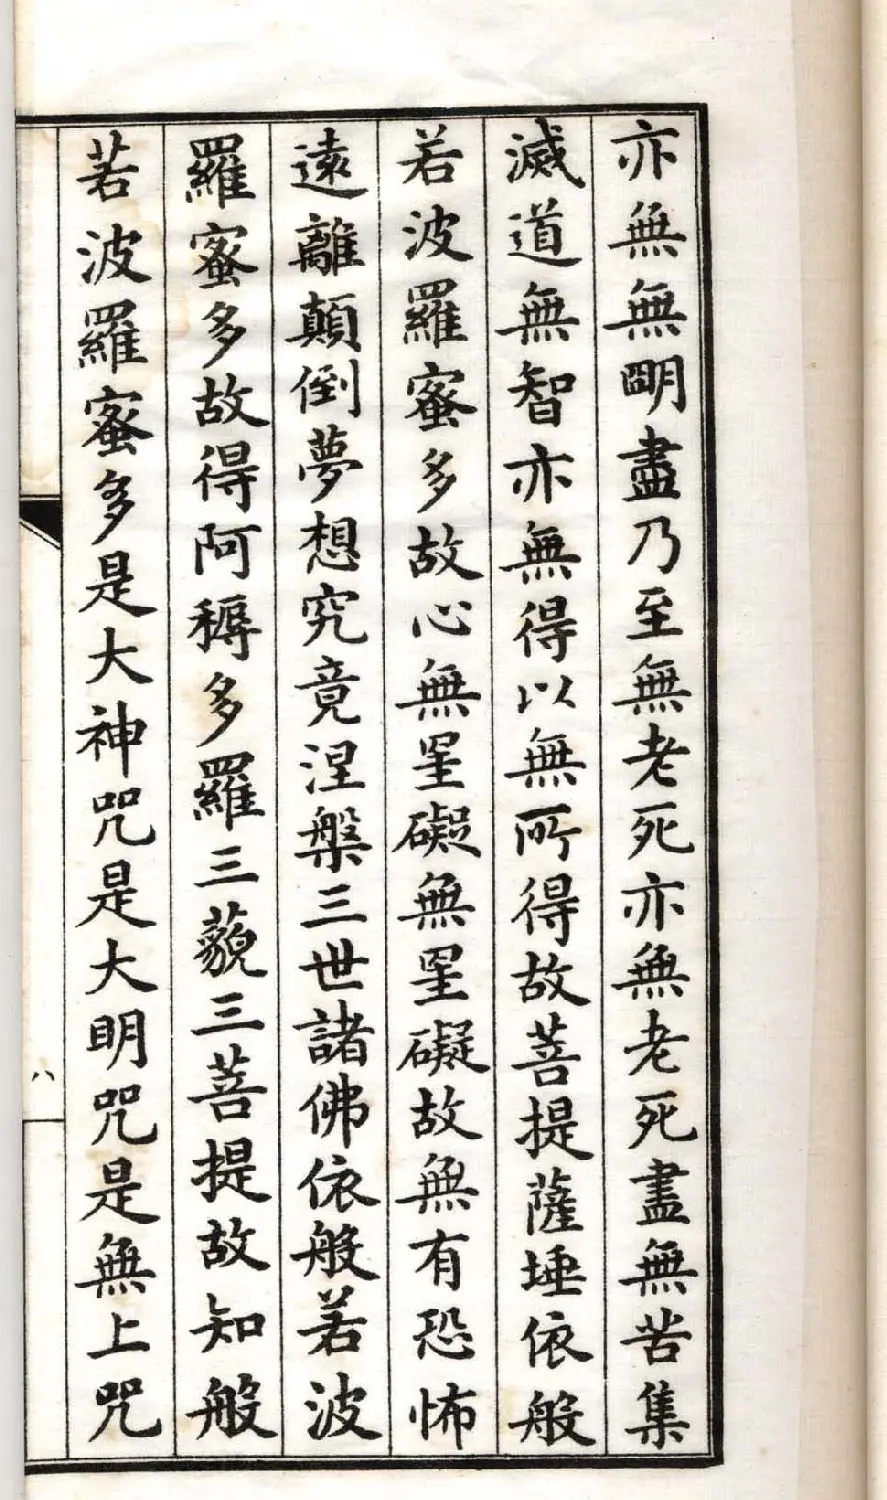 亦無無朙盡乃至無老死亦無老死盡無苦集
滅道無智亦無得以無所得故菩提薩埵依般
若波羅蜜多故心無罣礙無罣礙故無有恐怖
遠離顛倒夢想究竟涅槃三世諸佛依般若波
羅蜜多故得阿耨多羅三藐三菩提故知般
若波羅蜜多是大神咒是大明咒是無上咒
八